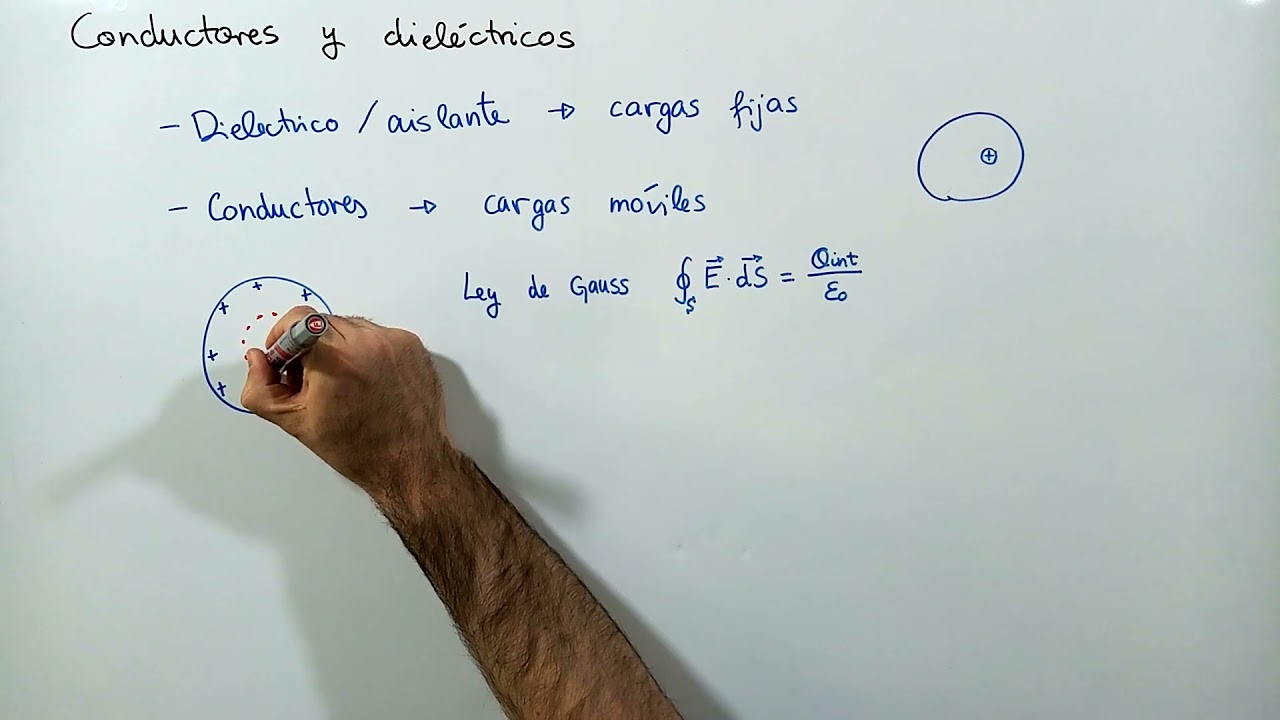 Conductores y dieléctricos
- Dielectrico / aislante → cargas fijas
⊕
- Conductores → cargas móviles
Ley de Gauss ∮_S E⃗ · dS⃗ = Qint / ε₀
+ + +
+
+